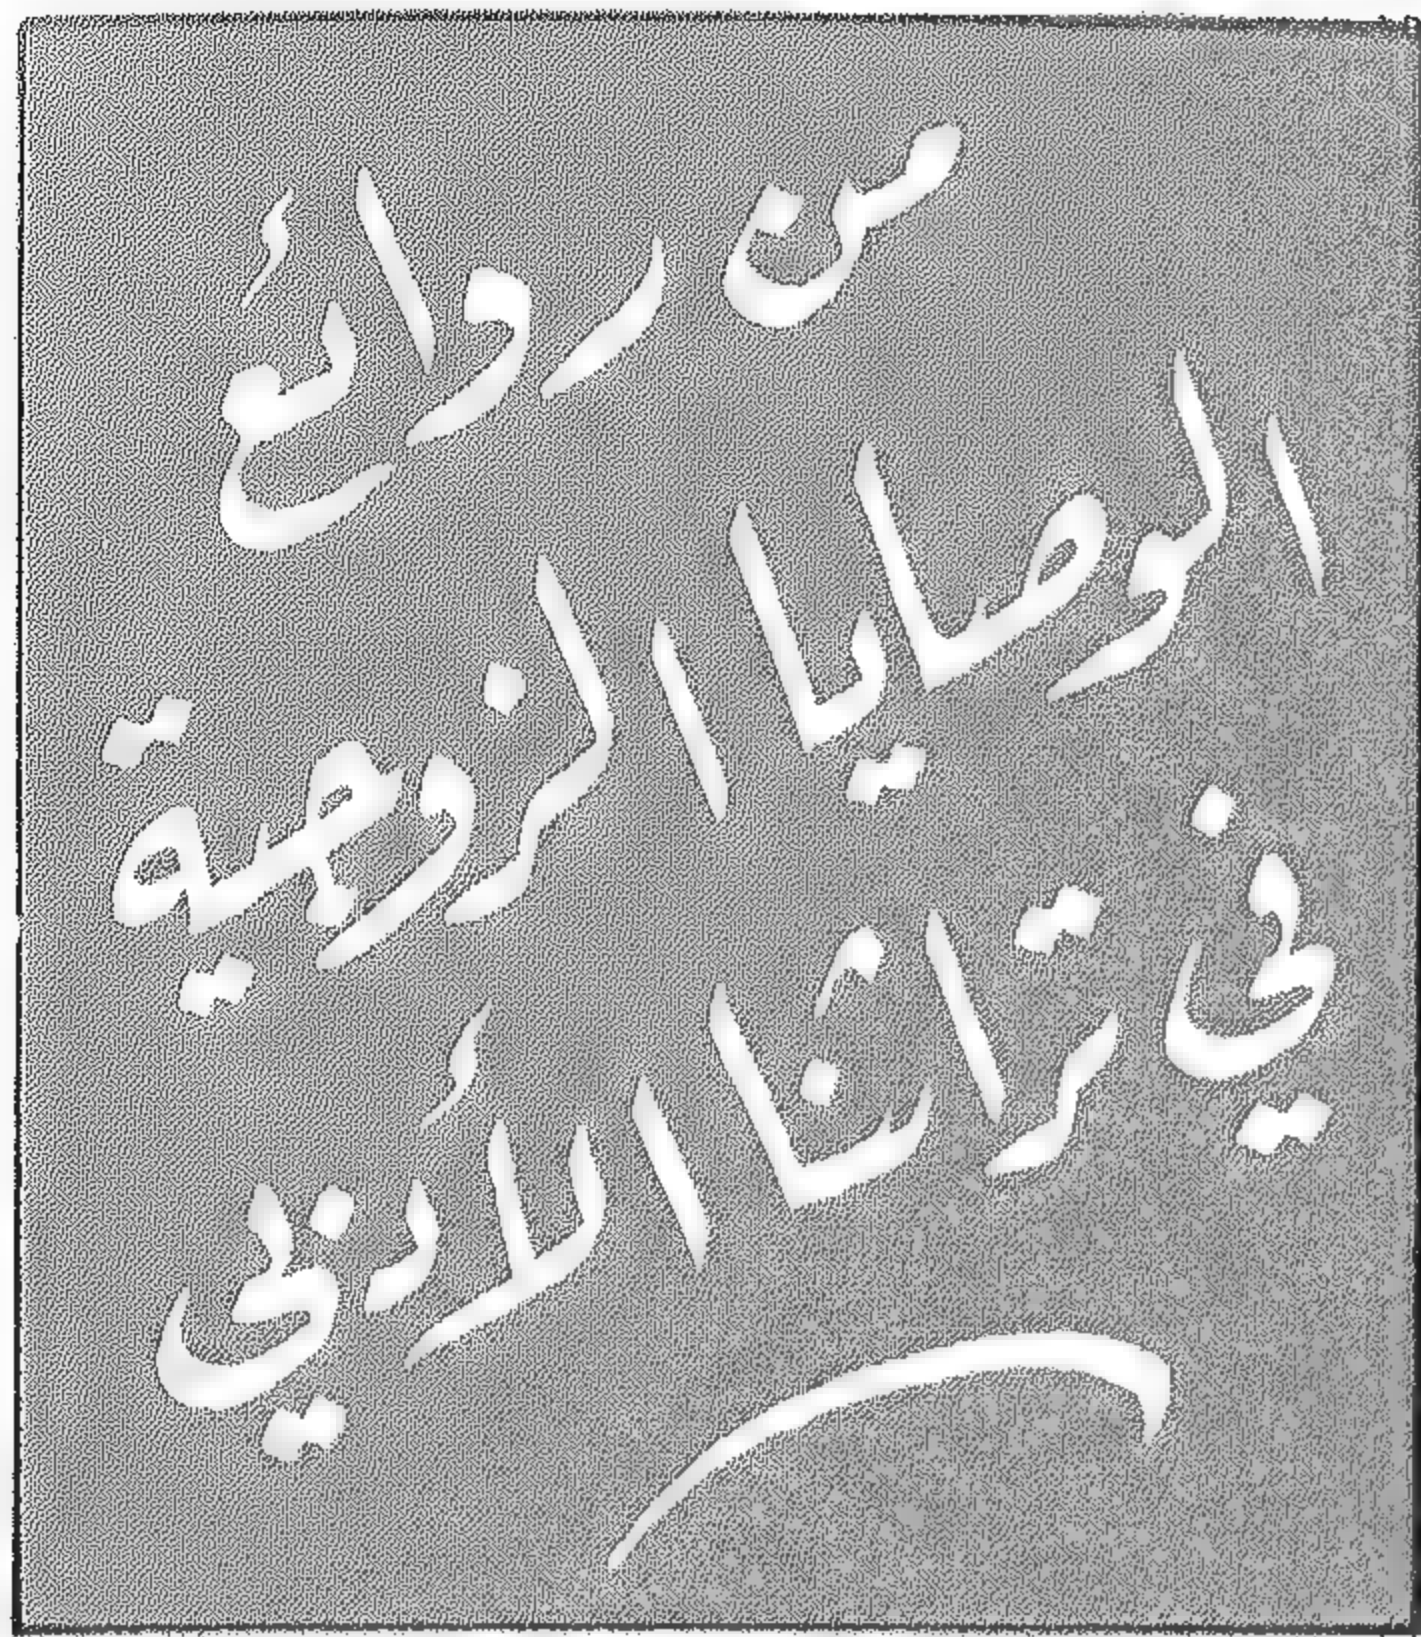 من روائع
الوصايا الزوجية
في تراثنا الأدبي